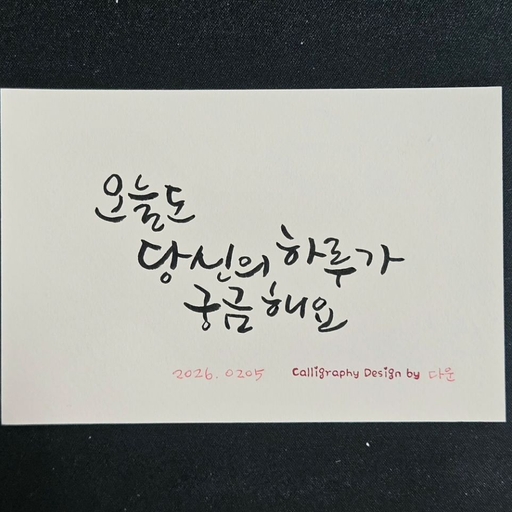 오늘도
당신의 하루가
궁금해요
2026. 0205 Calligraphy Design by 다운